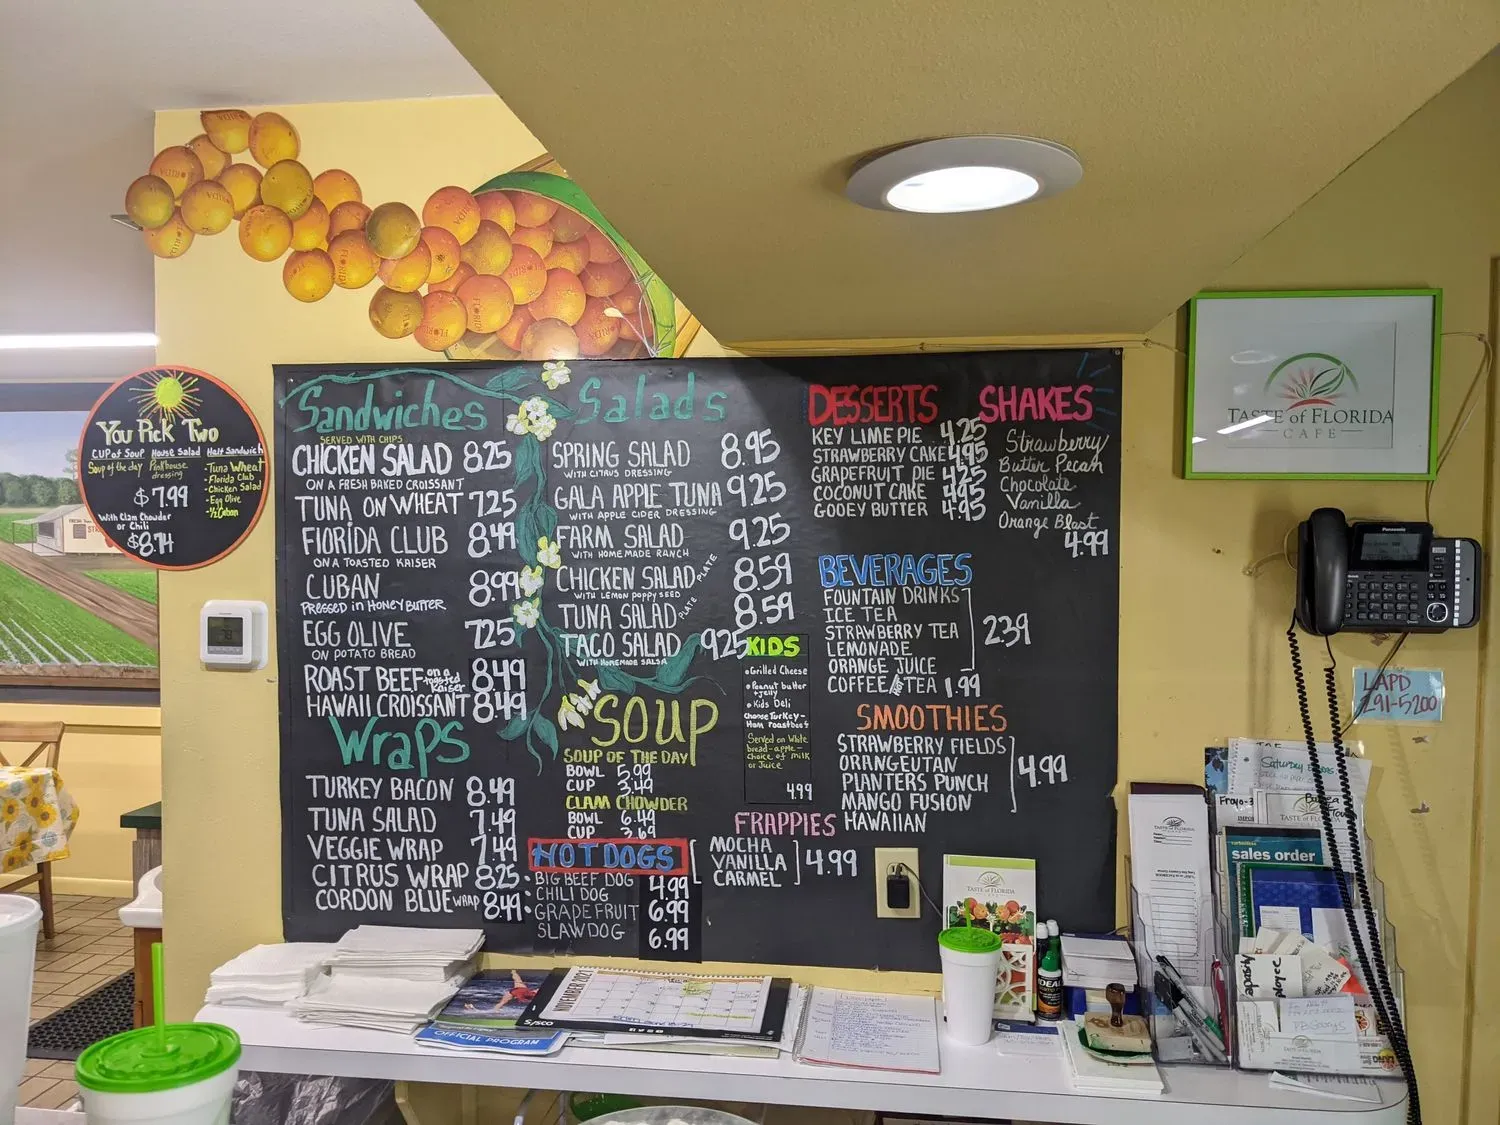 You Pick Two
CUP of Soup House Salad Half Sandwich
Soup of the day
dressing
$7.99
• Tuna Wheat
• Florida Club
• Chicken Salad
• Egg Olive
• ½ Cuban
With Clam Chowder
or Chili
$8.74
Sandwiches
SERVED WITH CHIPS
CHICKEN SALAD 8.25
ON A FRESH BAKED CROISSANT
TUNA ON WHEAT 7.25
FLORIDA CLUB 8.49
ON A TOASTED KAISER
CUBAN 8.99
PRESSED IN HONEY BUTTER
EGG OLIVE 7.25
ON POTATO BREAD
ROAST BEEF on a toasted Kaiser 8.49
HAWAII CROISSANT 8.49
Wraps
TURKEY BACON 8.49
TUNA SALAD 7.49
VEGGIE WRAP 7.49
CITRUS WRAP 8.25
CORDON BLUE WRAP 8.49
Salads
SPRING SALAD 8.95
WITH CITRUS DRESSING
GALA APPLE TUNA 9.25
WITH APPLE CIDER DRESSING
FARM SALAD 9.25
WITH HOMEMADE RANCH
CHICKEN SALAD PLATE 8.59
WITH LEMON POPPY SEED
TUNA SALAD PLATE 8.59
TACO SALAD 9.25
WITH HOMEMADE SALSA
SOUP
SOUP OF THE DAY
BOWL 5.99
CUP 3.49
CLAM CHOWDER
BOWL 6.49
CUP 3.69
HOT DOGS
• BIG BEEF DOG 4.99
• CHILI DOG 6.99
• GRAPEFRUIT
SLAW DOG 6.99
KIDS
• Grilled Cheese
• Peanut butter
+ jelly
• Kids Deli
Choose Turkey-
Ham roast beef
Served on White
bread-apple-
choice of milk
or Juice
4.99
FRAPPIES
MOCHA
VANILLA
CARMEL
4.99
DESSERTS
KEY LIME PIE 4.25
STRAWBERRY CAKE 4.95
GRAPEFRUIT PIE 4.25
COCONUT CAKE 4.95
GOOEY BUTTER 4.95
SHAKES
Strawberry
Butter Pecan
Chocolate
Vanilla
Orange Blast
4.99
BEVERAGES
FOUNTAIN DRINKS
ICE TEA
STRAWBERRY TEA
LEMONADE
ORANGE JUICE
2.39
COFFEE HOT TEA 1.99
SMOOTHIES
STRAWBERRY FIELDS
ORANGEUTAN
PLANTERS PUNCH
MANGO FUSION
HAWAIIAN
4.99
TASTE of FLORIDA
CAFE
Panasonic
LAPD
291-5200
Saturday
Froyo-3
sales order
TASTE of FLORIDA
IDEAL
NOVEMBER 2021
Sysco
OFFICIAL PROGRAM